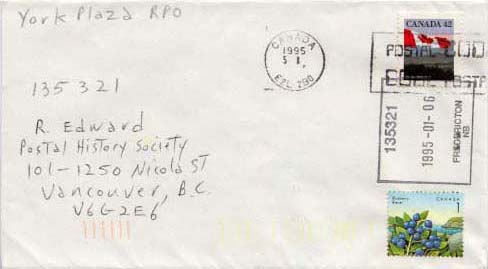 York Plaza RPO
135 321
R. Edward
Postal History Society
101-1250 Nicola ST
Vancouver, B.C.
V6G2E6
CANADA
1995
E2L 2B0
CANADA 42
POSTAL CODE
CODE POSTAL
135321
1995-01-06
FREDERICTON
NB
CANADA
1